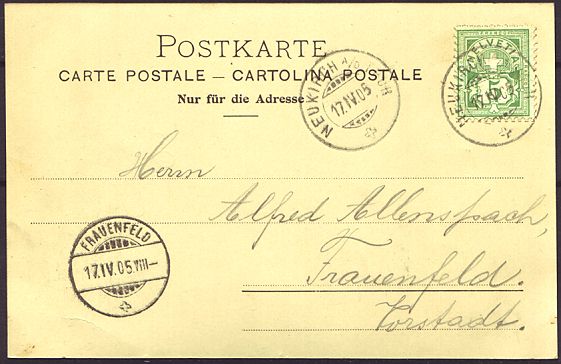 POSTKARTE
CARTE POSTALE – CARTOLINA POSTALE
Nur für die Adresse
NEUKIRCH A/D THUR
17.IV.05
HELVETIA
NEUKIRCH
17.IV.05
Herrn
Alfred Allenspach,
Frauenfeld.
Vorstadt.
FRAUENFELD
17.IV.05.VIII–